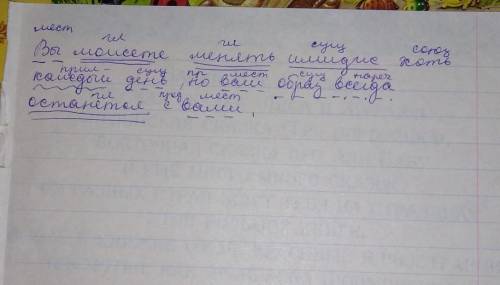 мест
гл гл сущ союз
Вы можете менять имидж хоть
прил сущ пр мест сущ нареч
каждый день, но ваш образ всегда
гл пред мест
останется с вами.